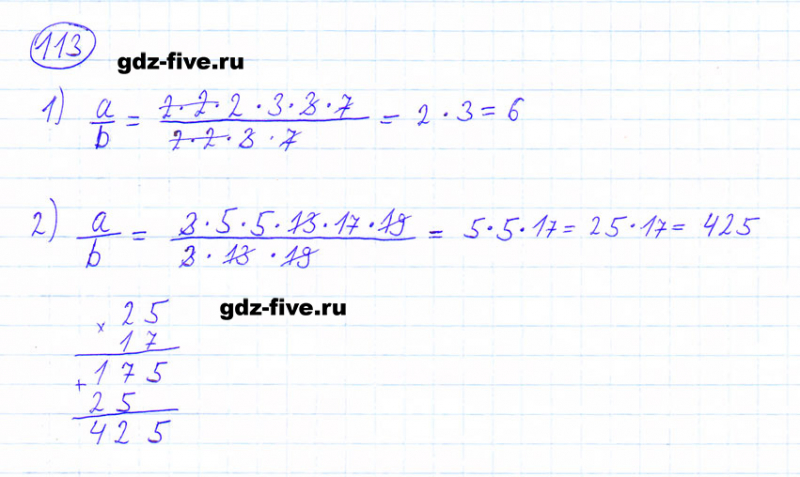 113
gdz-five.ru
1) a/b = 2·2·2·3·3·7 / 2·2·3·7 = 2·3 = 6
2) a/b = 3·5·5·13·17·19 / 3·13·19 = 5·5·17 = 25·17 = 425
gdz-five.ru
× 25
17
+ 175
25
425